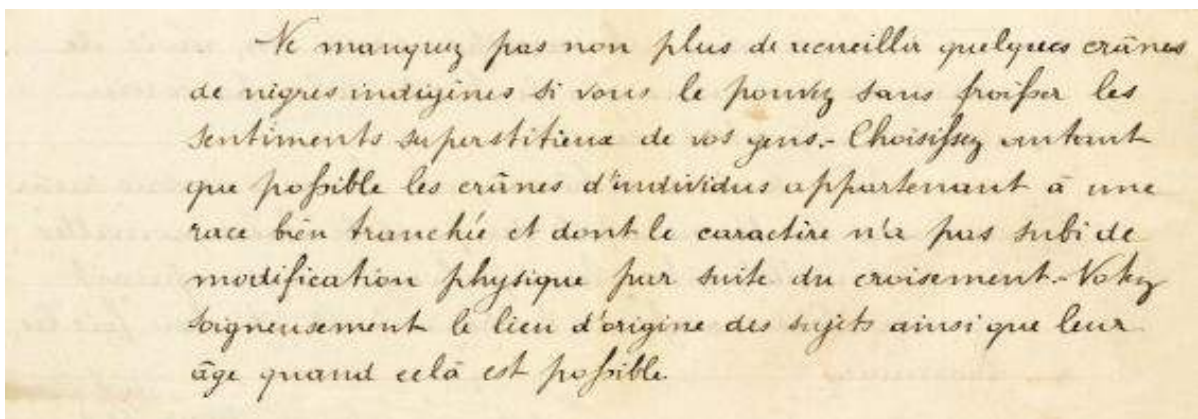 Ne manquez pas non plus de recueillir quelques crânes
de nègres indigènes si vous le pouvez sans froisser les
sentiments superstitieux de vos gens.- Choisissez autant
que possible les crânes d'individus appartenant à une
race bien tranchée et dont le caractère n'a pas subi de
modification physique par suite du croisement.- Notez
soigneusement le lieu d'origine des sujets ainsi que leur
âge quand celà est possible.